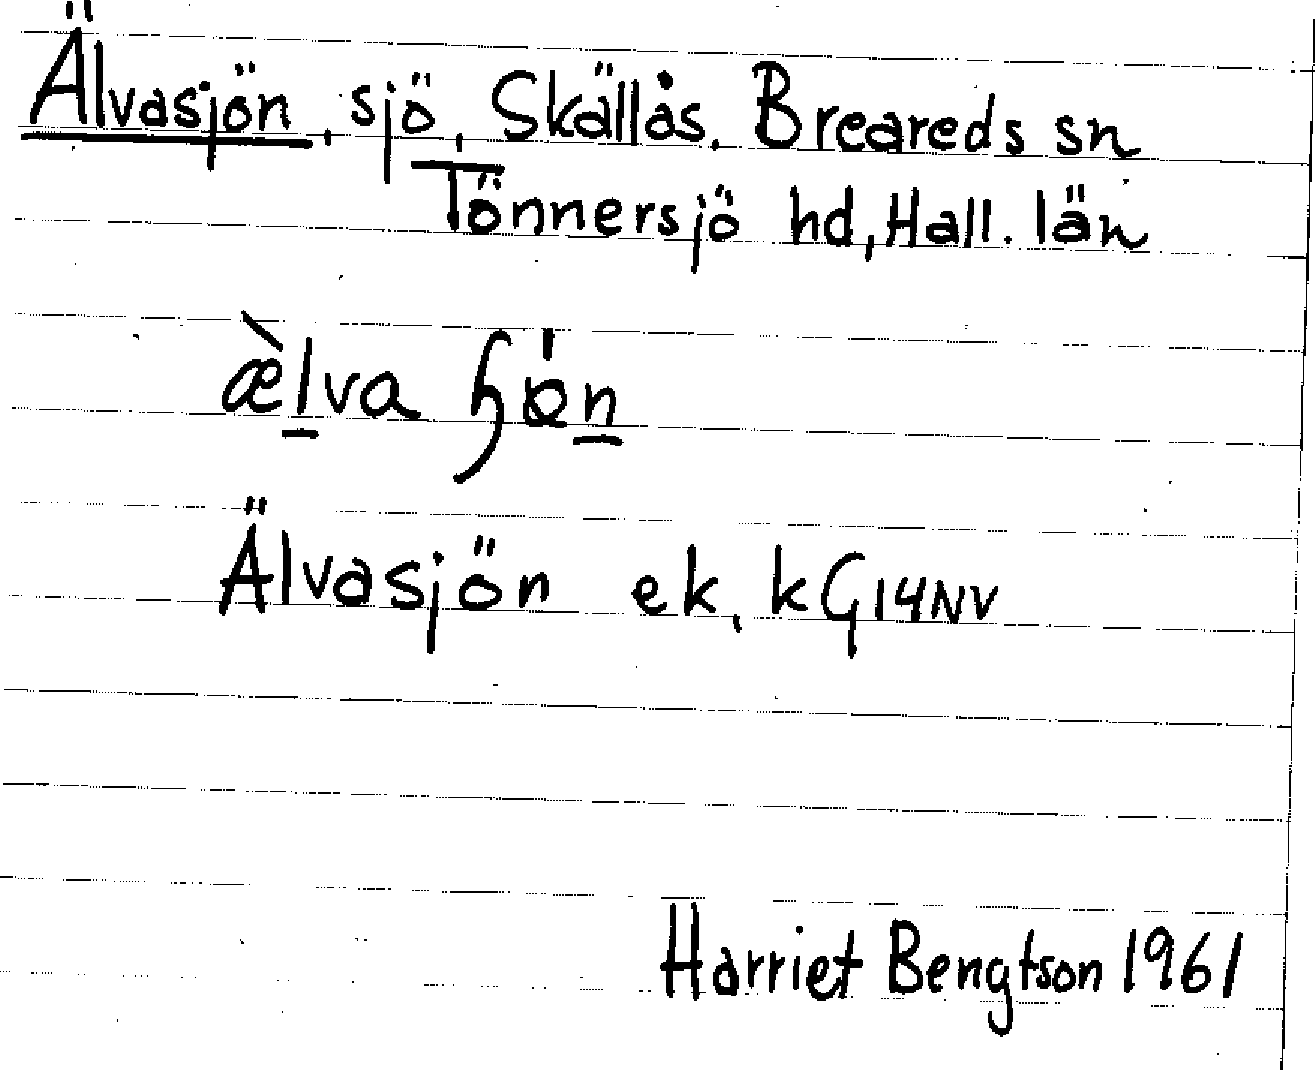 Älvasjön, sjö, Skällås. Breareds sn
Tönnersjö hd, Hall. län
æ̀lva ɧø̍n
Älvasjön ek, kG14NV
Harriet Bengtson 1961